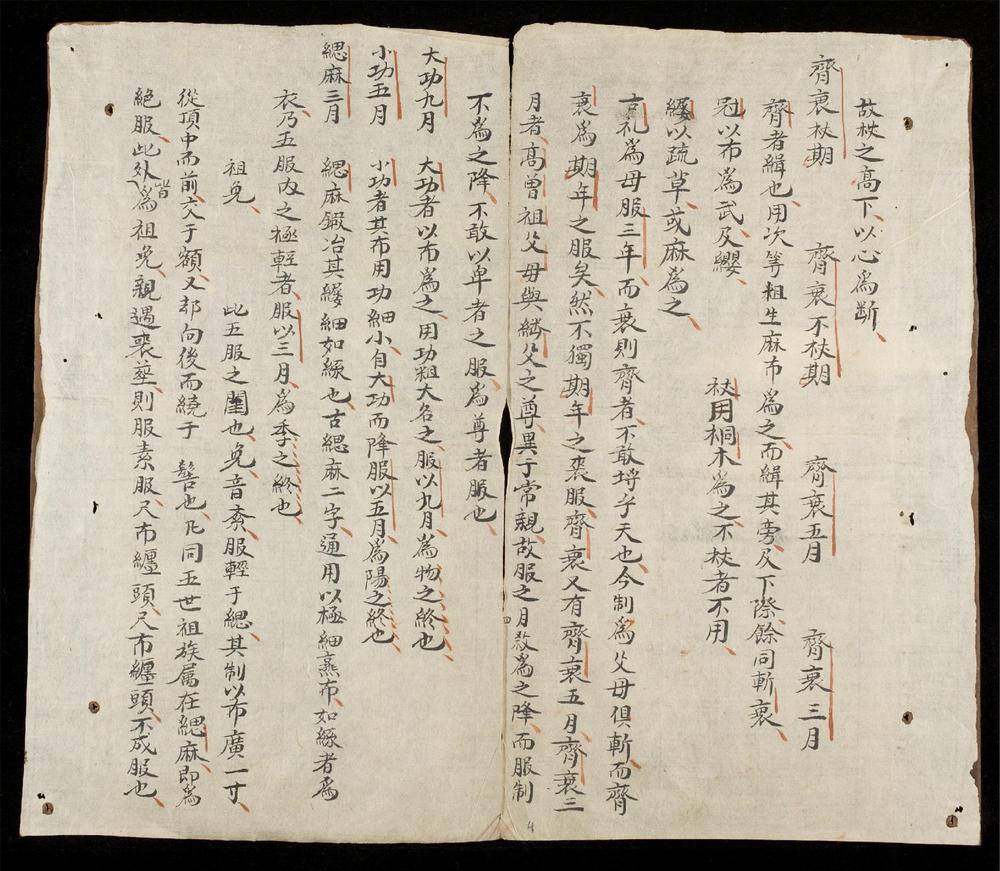 故杖之高下、以心爲斷、
齊衰杖期 齊衰不杖期 齊衰五月 齊衰三月
齊者緝也、用次等粗生麻布爲之、而緝其旁、及下際、餘同斬衰、
冠以布爲武、及纓、 杖用桐木爲之不杖者不用、
纓以疏草、或麻爲之、
古礼爲母服三年、而衰則齊者不敢埒乎天也、今制爲父母俱斬、而齊
衰爲期年之服矣、然不獨期年之喪服齊衰、又有齊衰五月、齊衰三
月者、高曽祖父毋與継父之尊、異于常親、故服之月数爲之降、而服制
不爲之降、不敢以卑者之服、爲尊者服也、
大功九月 大功者以布爲之、用功粗大名之、服以九月、爲物之終也、
小功五月 小功者其布用功細小、自大功而降、服以五月、爲陽之終也、
緦麻三月 緦麻鍛冶其縷、細如絲也、古緦麻二字通用、以極細熹布、如絲者爲
衣、乃五服内之極輕者、服以三月、爲季之終也、
袒免、 此五服之閏也、免音紊、服輕于緦、其制以布廣一寸、
從頂中而前、交于額、又却向後而繞于 髻也、凡同五世祖族属在緦麻、即爲
絶服、此外皆爲袒免、親遇喪塟、則服素服、尺布纏頭、尺布纏頭、不成服也、
4